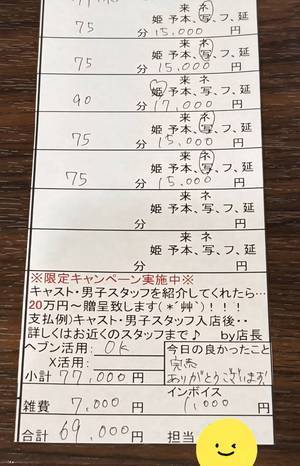 75
来 ネ
姫 予 本、写、フ、延
分 15,000 円
75
来 ネ
姫 予 本、写、フ、延
分 15,000 円
90
来 ネ
姫 予 本、写、フ、延
分 17,000 円
75
来 ネ
姫 予 本、写、フ、延
分 15,000 円
75
来 ネ
姫 予 本、写、フ、延
分 15,000 円
来 ネ
姫 予 本、写、フ、延
分 円
来 ネ
姫 予 本、写、フ、延
分 円
※限定キャンペーン実施中※
キャスト・男子スタッフを紹介してくれたら…
20万円〜贈呈致します(*´艸`)！！！
支払例)キャスト・男子スタッフ入店後・・
詳しくはお近くのスタッフまで♪ by店長
ヘブン活用: OK
X活用:
今日の良かったこと
完売
ありがとうございます!
小計 77,000 円
雑費 7,000 円
インボイス
1,000 円
合計 69,000 円
担当